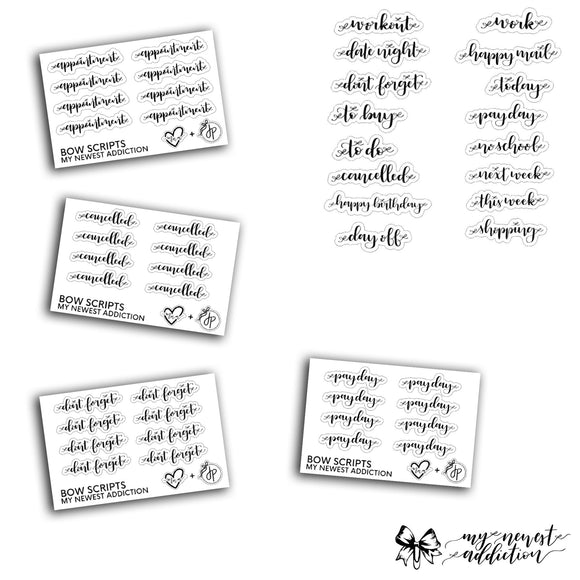 appointment appointment
appointment appointment
appointment appointment
appointment appointment
BOW SCRIPTS
MY NEWEST ADDICTION
+ JP
workout
date night
don't forget
to buy
to do
cancelled
happy birthday
day off
work
happy mail
today
pay day
no school
next week
this week
shopping
cancelled cancelled
cancelled cancelled
cancelled cancelled
cancelled cancelled
BOW SCRIPTS
MY NEWEST ADDICTION
+ JP
don't forget don't forget
don't forget don't forget
don't forget don't forget
don't forget don't forget
BOW SCRIPTS
MY NEWEST ADDICTION
+ JP
pay day pay day
pay day pay day
pay day pay day
pay day pay day
BOW SCRIPTS
MY NEWEST ADDICTION
+ JP
my newest
addiction